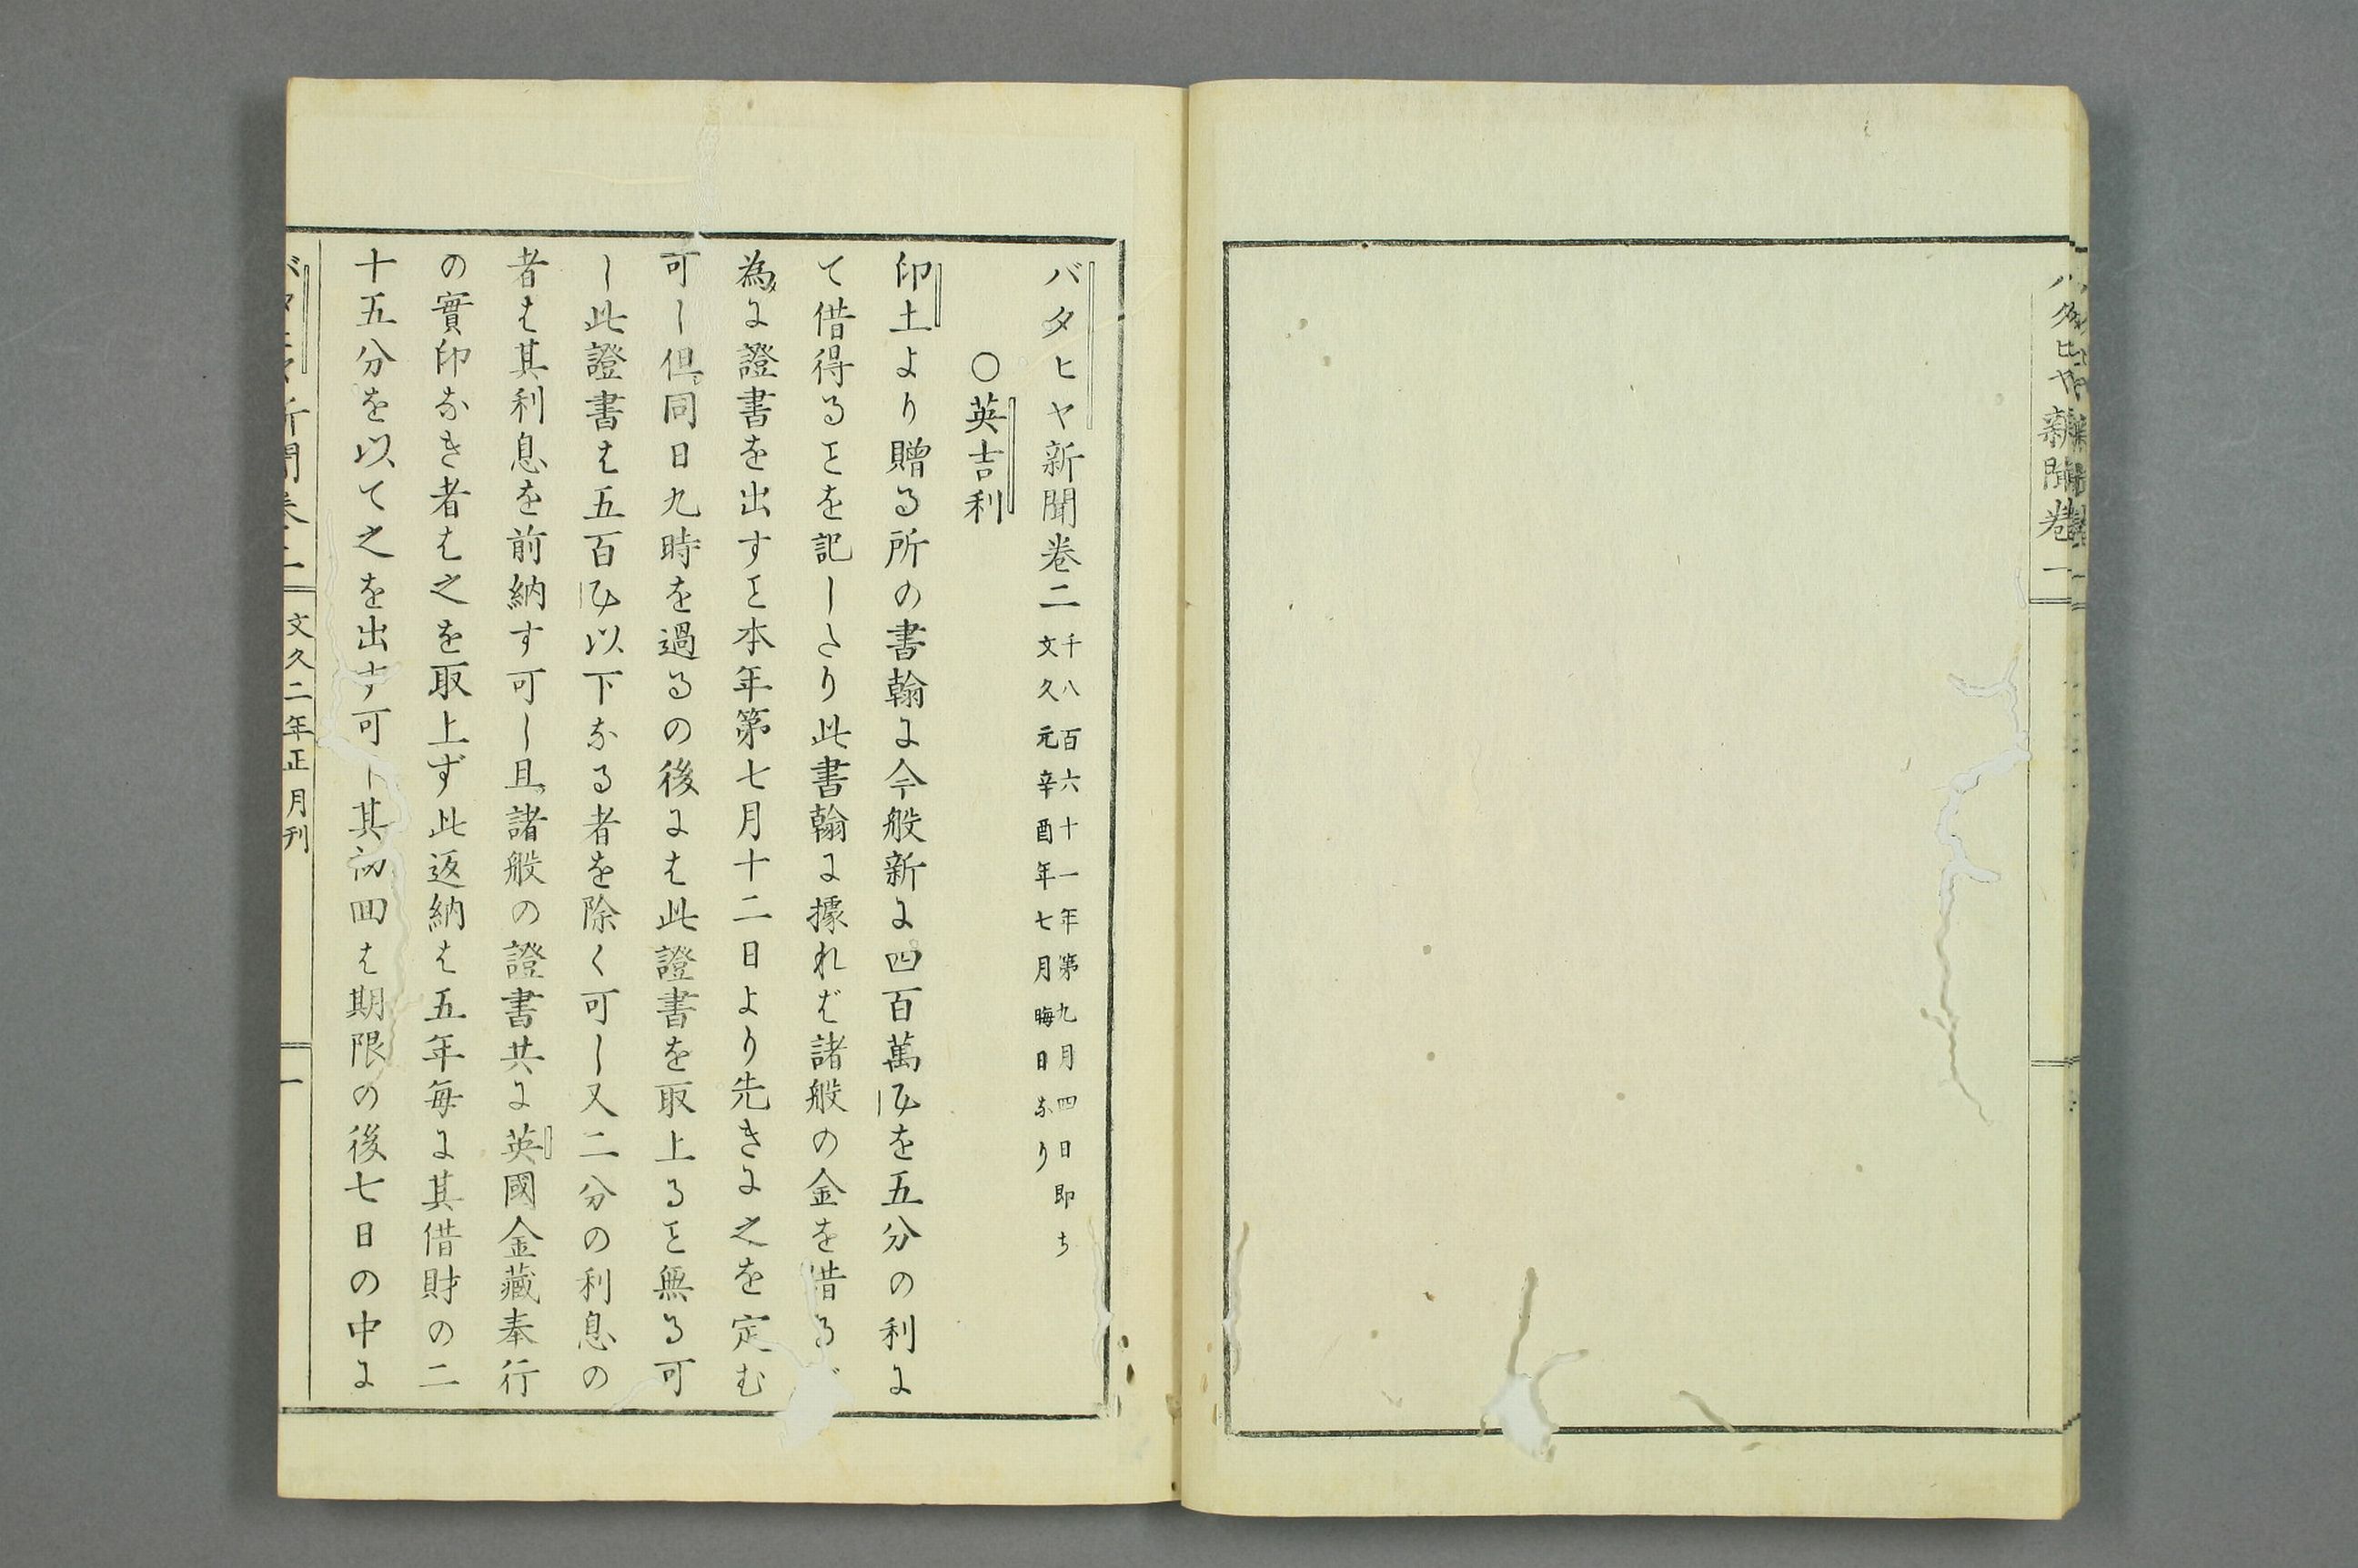 バタヒヤ新聞卷一
バタヒヤ新聞卷二 千八百六十一年第九月四日即ち
文久元辛酉年七月晦日なり
〇英吉利
印土より贈る所の書翰に今般新に四百萬㪷を五分の利に
て借得るヿを記したり此書翰に據れば諸般の金を借る
為に證書を出すヿ本年第七月十二日より先きに之を定む
可し但同日九時を過るの後には此證書を取上るヿ無る可
し此證書は五百㪷以下なる者を除く可し又二分の利息の
者は其利息を前納す可し且諸般の證書共に英國金藏奉行
の實印なき者は之を取上ず此返納は五年毎に其借財の二
十五分を以て之を出す可し其初回は期限の後七日の中に
バタヒヤ新聞卷二 文久二年正月刊 一